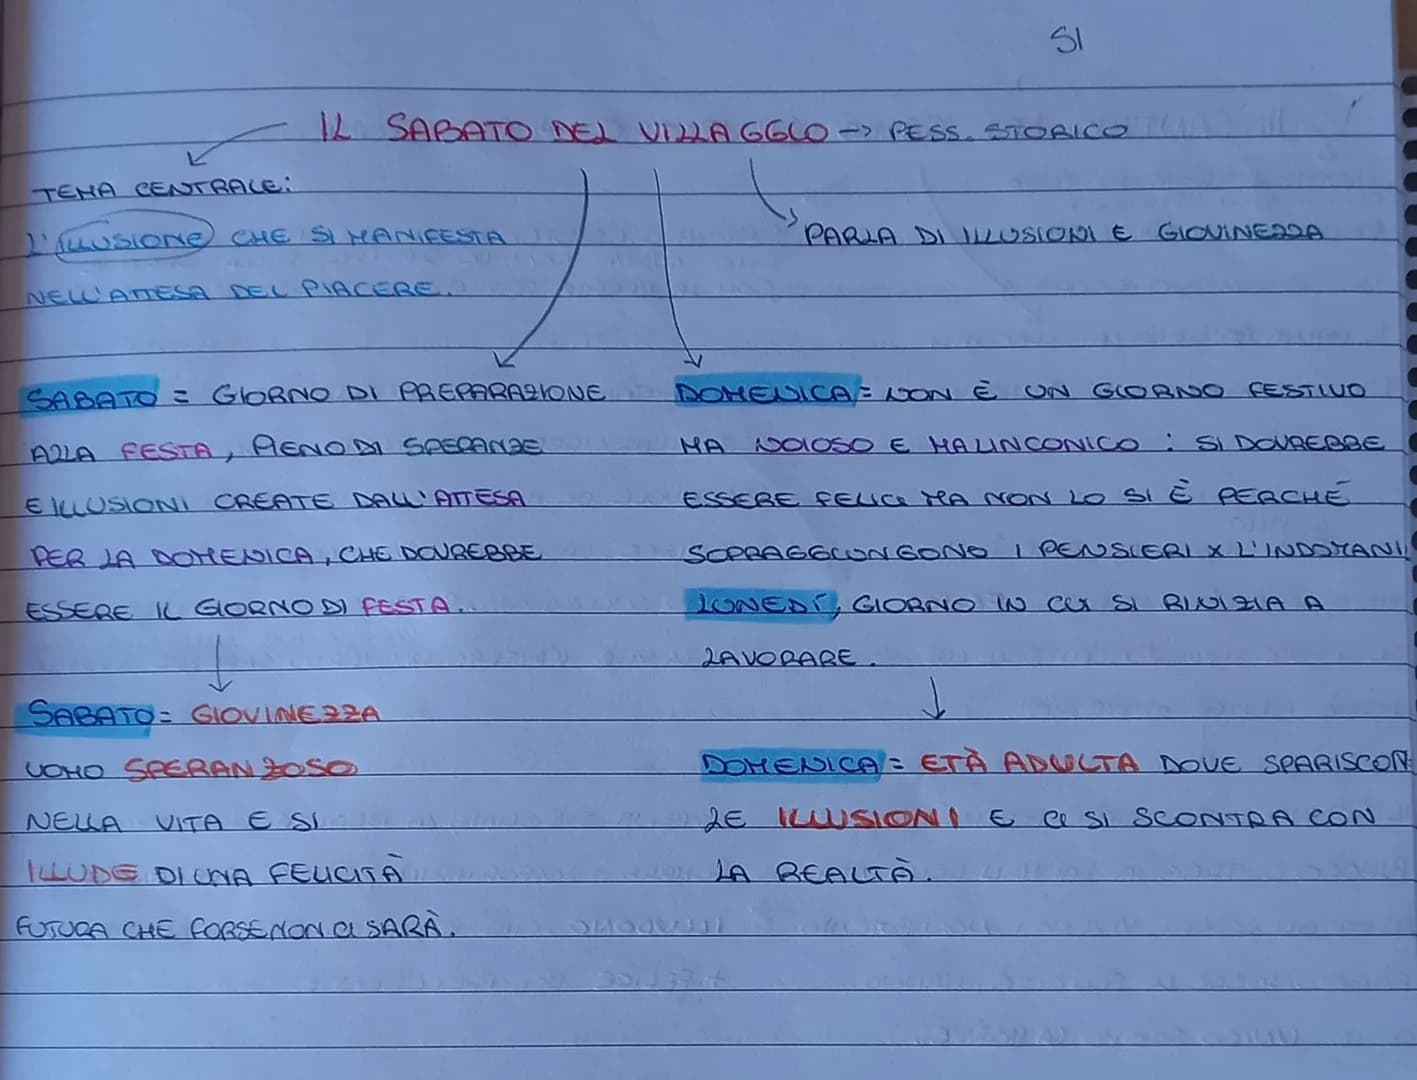 SI
IL SABATO DEL VILLAGGIO -> PESS. STORICO
TEMA CENTRALE:
L'ILLUSIONE CHE SI MANIFESTA
NELL'ATTESA DEL PIACERE.
PARLA DI ILLUSIONI E GIOVINEZZA
SABATO = GIORNO DI PREPARAZIONE
ALLA FESTA, PIENO DI SPERANZE
E ILLUSIONI CREATE DALL'ATTESA
PER LA DOMENICA, CHE DOVREBBE
ESSERE IL GIORNO DI FESTA.
SABATO = GIOVINEZZA
UOMO SPERANZOSO
NELLA VITA E SI
ILLUDE DI UNA FELICITÀ
FUTURA CHE FORSE NON CI SARÀ.
DOMENICA = NON È UN GIORNO FESTIVO
MA NOIOSO E MALINCONICO : SI DOVREBBE
ESSERE FELICI MA NON LO SI È PERCHÉ
SOPRAGGIUNGONO I PENSIERI X L'INDOMANI
LUNEDÌ, GIORNO IN CUI SI RINIZIA A
LAVORARE.
DOMENICA = ETÀ ADULTA DOVE SPARISCON
LE ILLUSIONI E CI SI SCONTRA CON
LA REALTÀ.